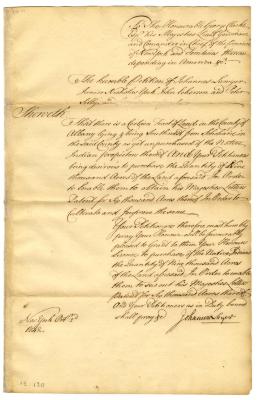 To The Honourable George Clarke
Esqr his Majesties Lieut Governour
and Comander in Chief of the Province
of New York and Territories thereon
depending in America &c.
The humble Petition of Johannes Lawyer
Junior Nicholas York John and Peter
Sheweth
That there is a Certain Tract of Land in the County of
Albany lying and being Southward from in
the said County as yet unpurchased of the Native
Indian proprietors thereof And Your Petitioners
being desirous to purchase the Quantity of
thousand Acres of the Land aforesaid In Order
to Enable them to obtain his Majesties Letters
Patent for Six thousand Acres thereof In Order to
Cultivate and improve the same
Your Petitioners therefore most humbly
pray Your Honour will be favourably
pleased to Grant to them Your Honours
Licence to purchase of the Native
the Quantity of thousand Acres
of the Land aforesaid In Order to enable
them to sue out his Majesties Letters
Patent for Six thousand Acres thereof
And Your Petitioners as in Duty bound
shall pray &c
Johannes Lawyer
New York